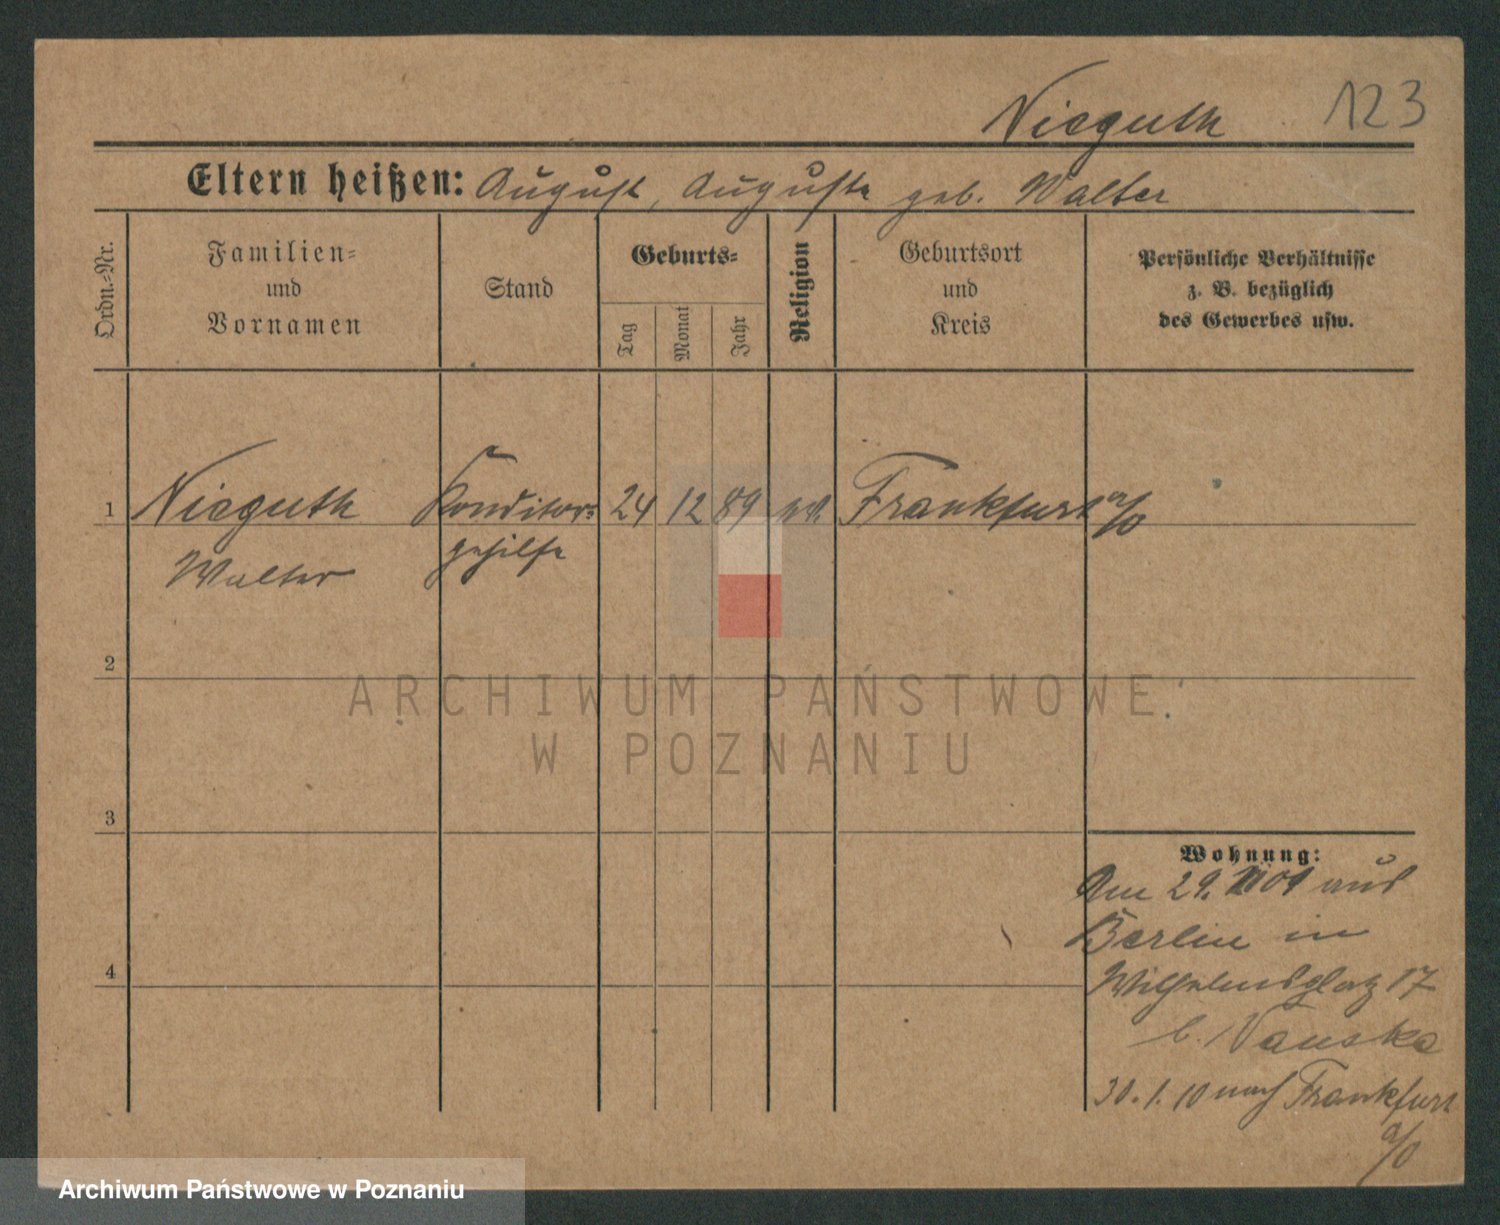 Nieguth 123
Eltern heißen: August, Auguste geb. Walter
Ordn.-Nr.
Familien-
und
Vornamen
Stand
Geburts-
Tag
Monat
Jahr
Religion
Geburtsort
und
Kreis
Persönliche Verhältnisse
z. B. bezüglich
des Gewerbes usw.
1 Nieguth Konditor- 24 12 89 ev. Frankfurt a/O
Walter gehilfe
2
ARCHIWUM PAŃSTWOWE
W POZNANIU
3
Wohnung:
Am 29. 09 aus
Berlin in
4
Wilhelmsplatz 17
b.
30. 1. 10 nach Frankfurt
a/O
Archiwum Państwowe w Poznaniu